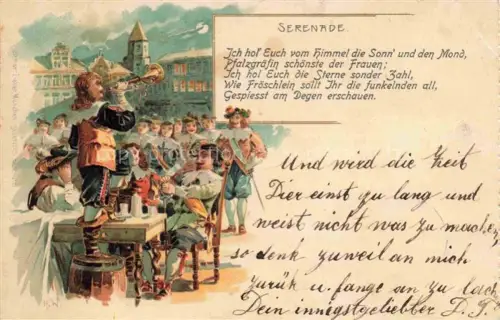 SERENADE.
Ich hol' Euch vom Himmel die Sonn' und den Mond,
Pfalzgräfin schönste der Frauen;
Ich hol Euch die Sterne sonder Zahl,
Wie Fröschlein sollt Ihr die funkelnden all,
Gespiesst am Degen erschauen.
Und wird die Zeit
Dir einst zu lang und
weist nicht was zu machen,
so denk zuweil an mich
zurük u. fange an zu lach
Dein innigstgeliebter D. J.